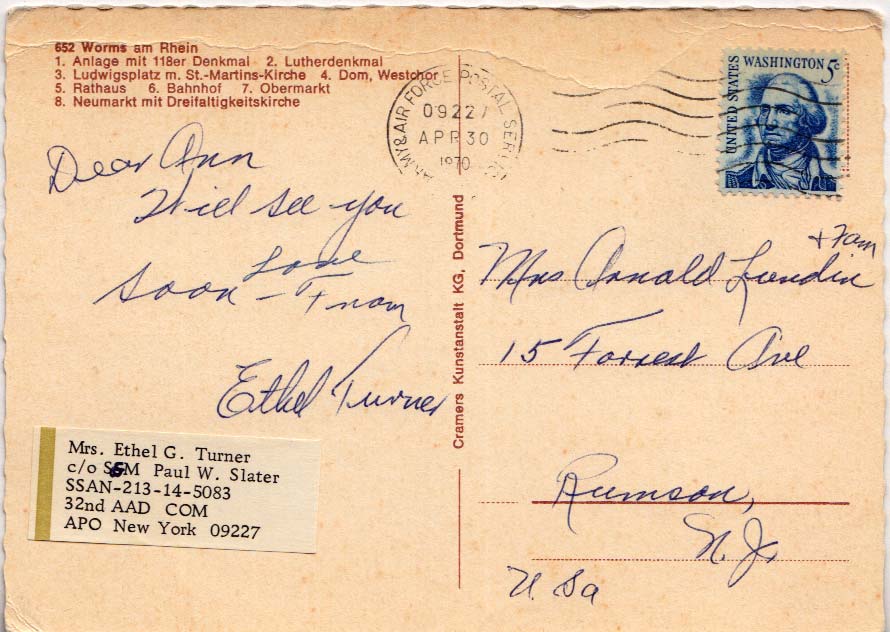 652 Worms am Rhein
1. Anlage mit 118er Denkmal 2. Lutherdenkmal
3. Ludwigsplatz m. St.-Martins-Kirche 4. Dom, Westchor
5. Rathaus 6. Bahnhof 7. Obermarkt
8. Neumarkt mit Dreifaltigkeitskirche
ARMY & AIR FORCE POSTAL SERVICE
09227
APR 30
1970
UNITED STATES
WASHINGTON 5c
Dear Ann
Will see you
Love
soon - From
Ethel Turner
Mrs. Ethel G. Turner
c/o SGM Paul W. Slater
SSAN-213-14-5083
32nd AAD COM
APO New York 09227
Cramers Kunstanstalt KG, Dortmund
+ Fam
Mrs Arnald Lundin
15 Forrest Ave
Rumson,
N. J.
U. Sa